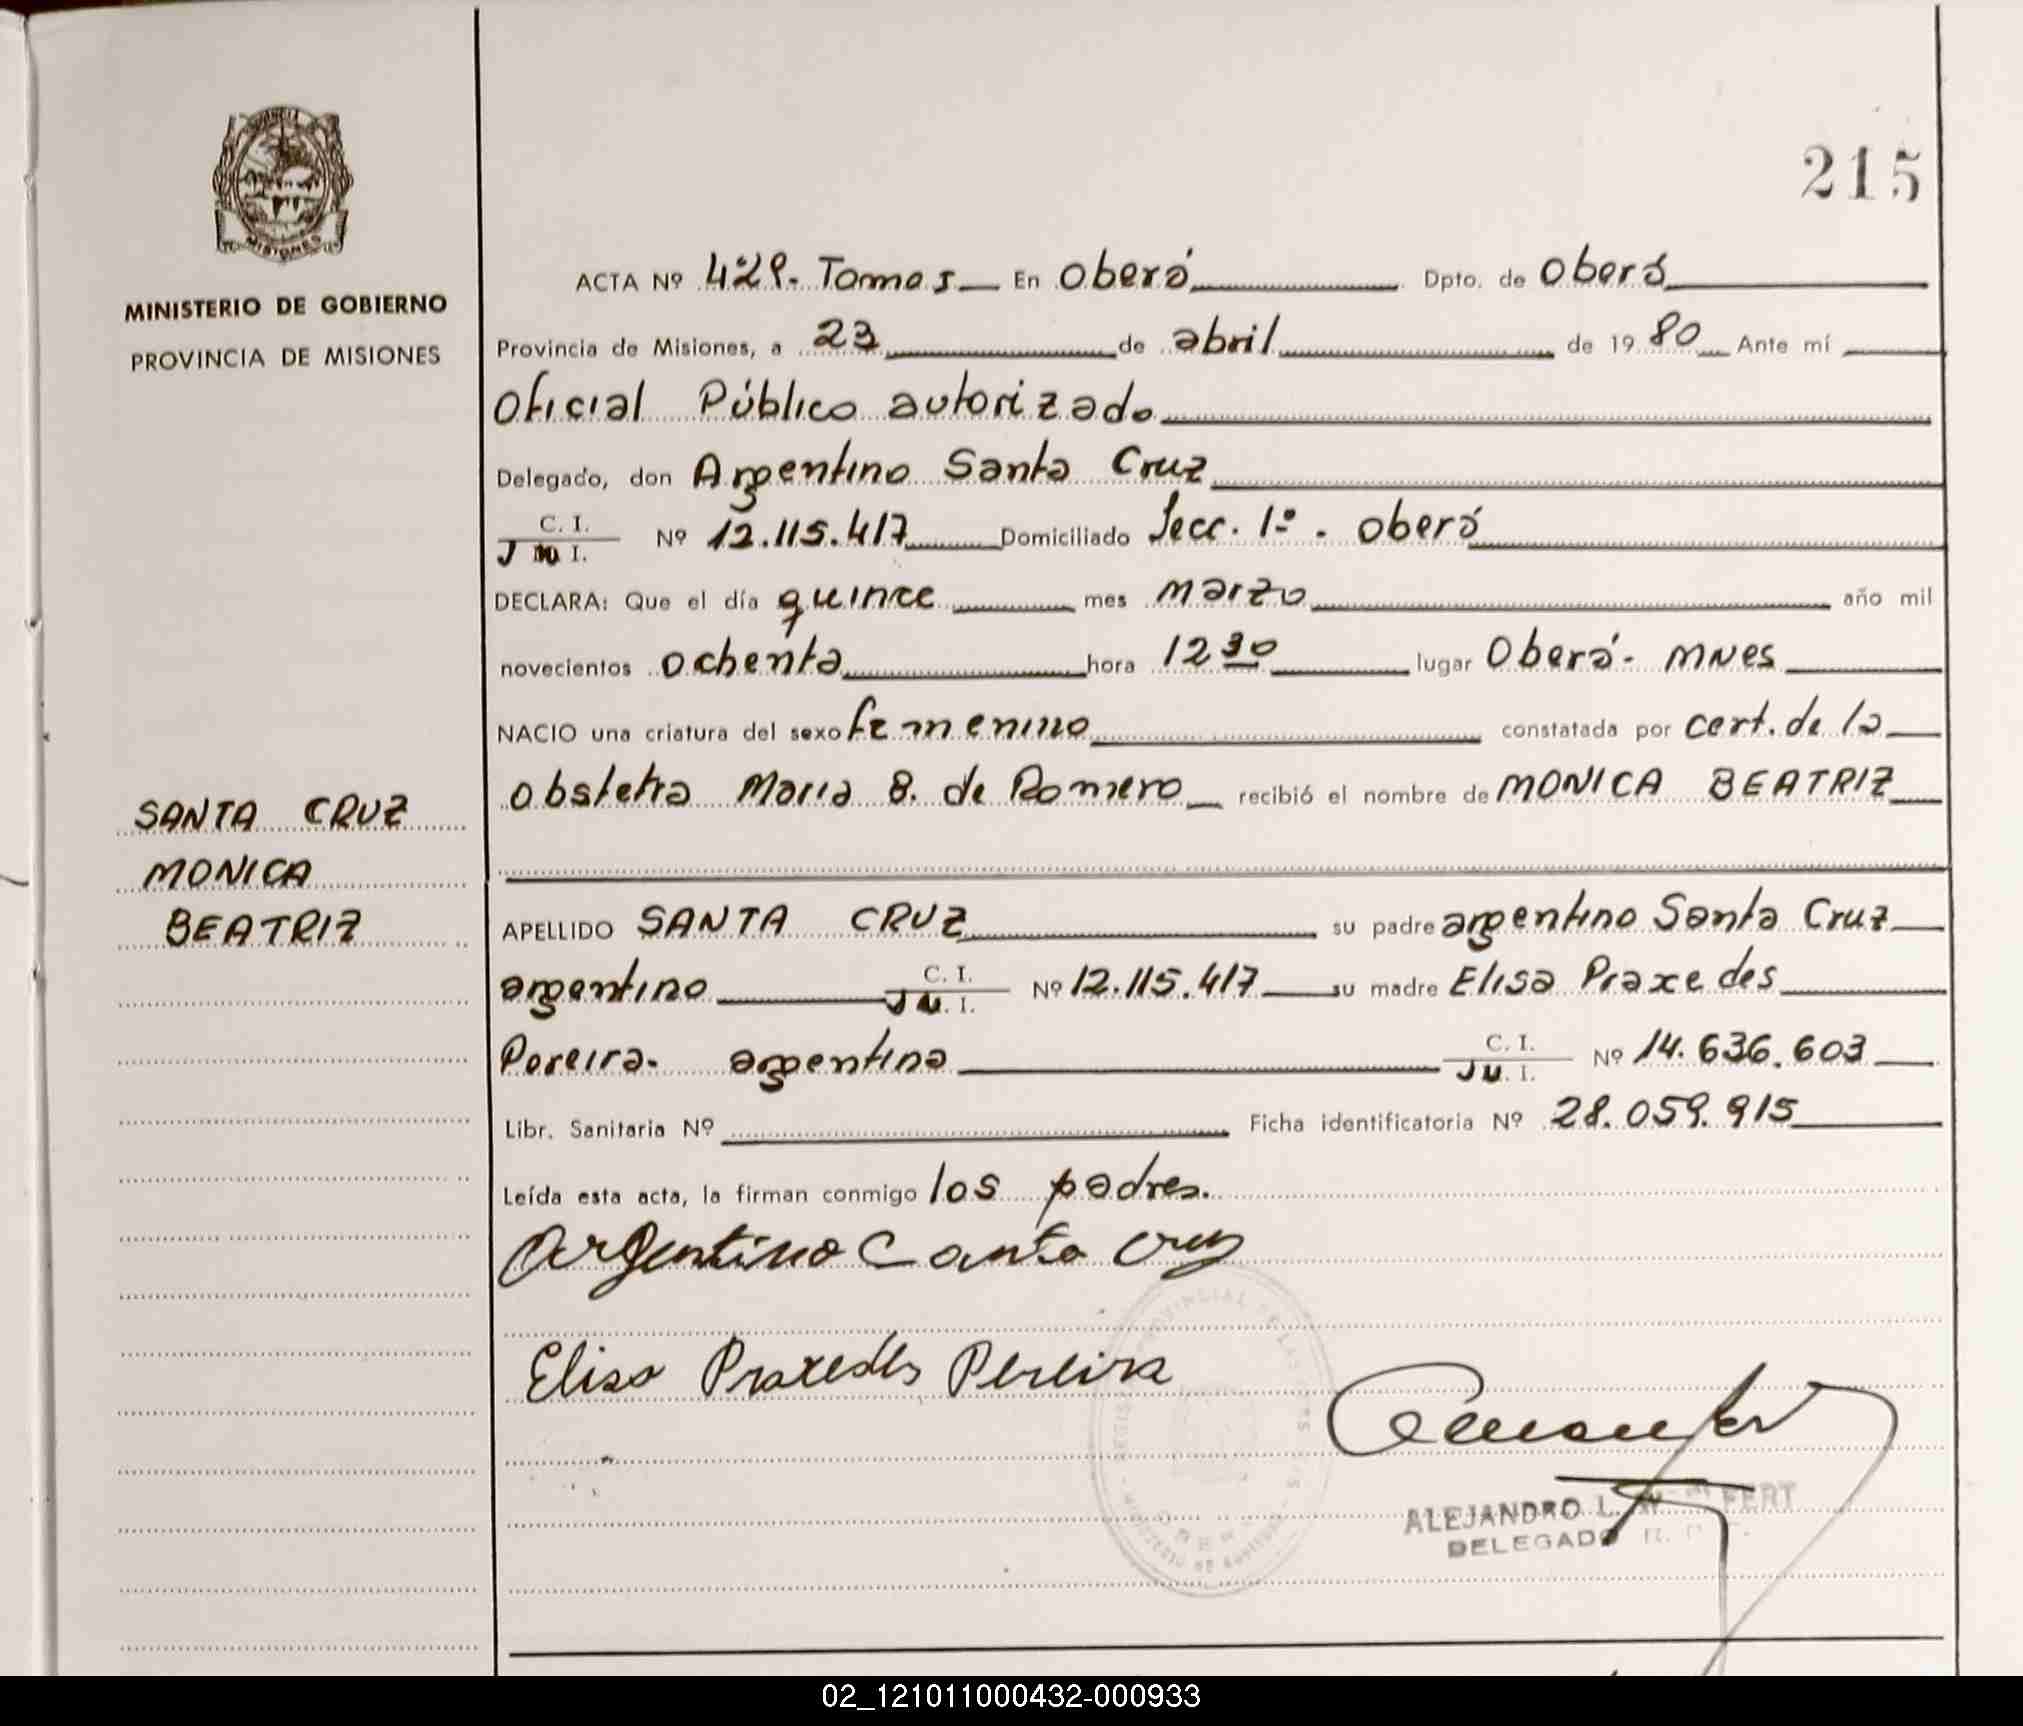 215
MINISTERIO DE GOBIERNO
PROVINCIA DE MISIONES
ACTA Nº 429. Tomo I En Oberá Dpto. de Oberá
Provincia de Misiones, a 23 de abril de 1980 Ante mí
Oficial Público autorizado
Delegado, don Argentino Santa Cruz
C. I.
I. Nº 12.115.417 Domiciliado Secc. 1º - Oberá
DECLARA: Que el día quince mes marzo año mil
novecientos ochenta hora 12 30 lugar Oberá- MNES
NACIO una criatura del sexo femenino constatada por cert. de la
obstetra Maria B. de Romero recibió el nombre de MONICA BEATRIZ
SANTA CRUZ
MONICA
BEATRIZ
APELLIDO SANTA CRUZ su padre argentino Santa Cruz
argentino C. I. I. Nº 12.115.417 su madre Elisa Praxedes
Pereira- argentina C. I. I. Nº 14.636.603
Libr. Sanitaria Nº Ficha identificatoria Nº 28.059.915
Leída esta acta, la firman conmigo los padres.
Argentino Santa Cruz
Elisa Praxedes Pereira
ALEJANDRO L.
DELEGADO
02_121011000432-000933